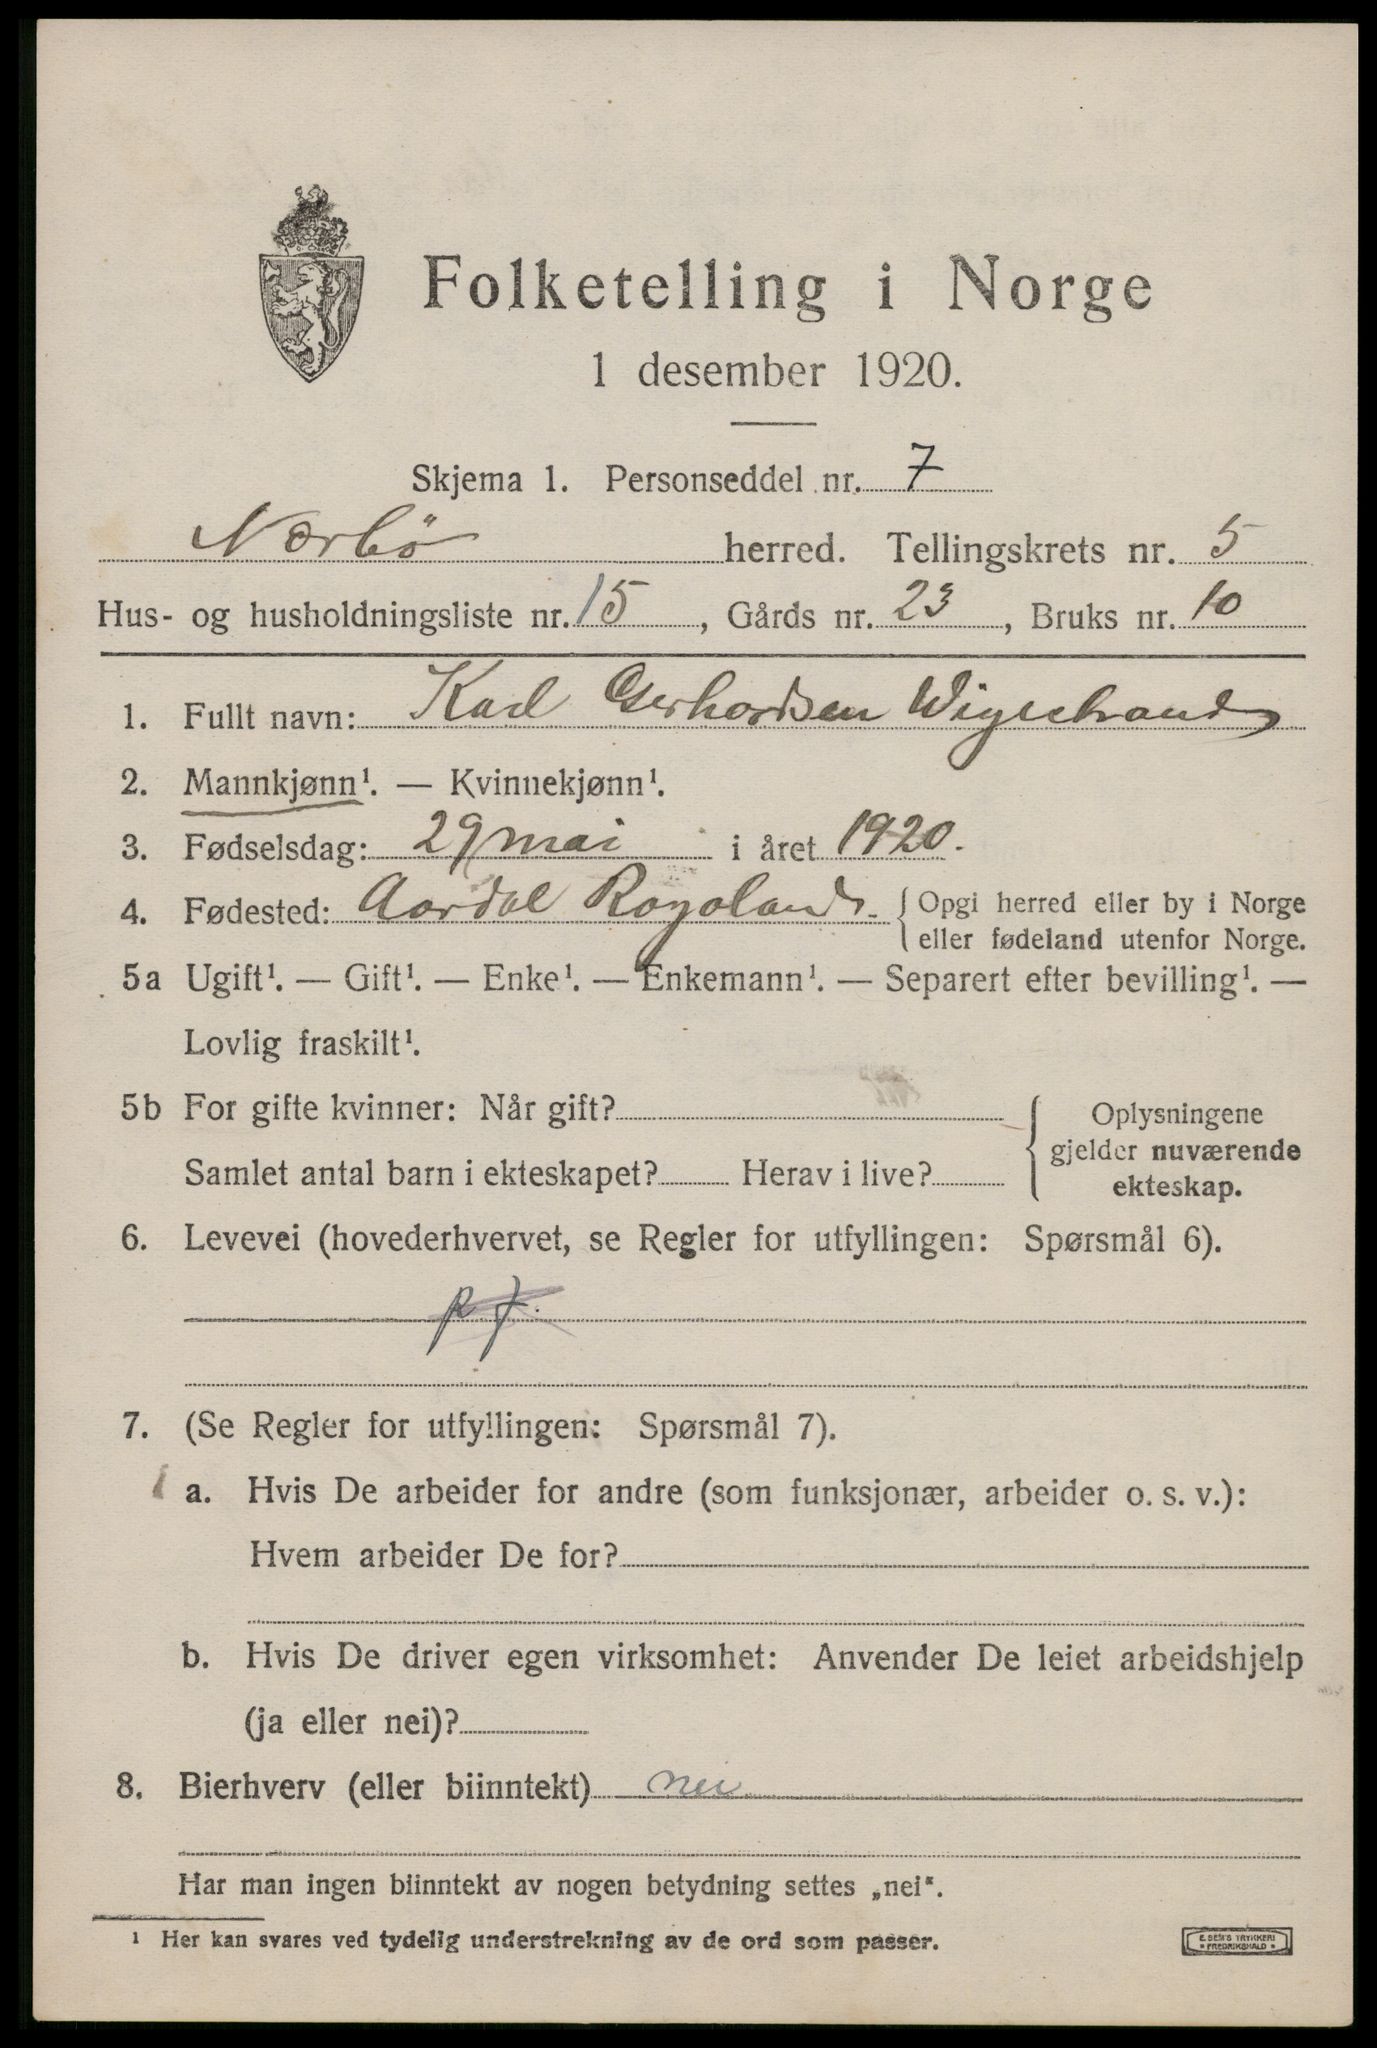 Folketelling i Norge
1 desember 1920.
Skjema 1. Personseddel nr. 7
Nærbö herred. Tellingskrets nr. 5
Hus- og husholdningsliste nr. 15, Gårds nr. 23, Bruks nr. 10
1. Fullt navn: Karl Gerhardsen Wigestrand
2. Mannkjønn¹. — Kvinnekjønn¹.
3. Fødselsdag: 29 mai i året 1920.
4. Fødested: Aardal Rogaland. { Opgi herred eller by i Norge
eller fødeland utenfor Norge.
5a Ugift¹. — Gift¹. — Enke¹. — Enkemann¹. — Separert efter bevilling¹. —
Lovlig fraskilt¹.
5b For gifte kvinner: Når gift?
Samlet antal barn i ekteskapet? Herav i live?
{ Oplysningene
gjelder nuværende
ekteskap.
6. Levevei (hovederhvervet, se Regler for utfyllingen: Spørsmål 6).
7. (Se Regler for utfyllingen: Spørsmål 7).
a. Hvis De arbeider for andre (som funksjonær, arbeider o. s. v.):
Hvem arbeider De for?
b. Hvis De driver egen virksomhet: Anvender De leiet arbeidshjelp
(ja eller nei)?
8. Bierhverv (eller biinntekt) nei
Har man ingen biinntekt av nogen betydning settes „nei".
¹ Her kan svares ved tydelig understrekning av de ord som passer.
E. SEM'S TRYKKERI
* FREDRIKSHALD *